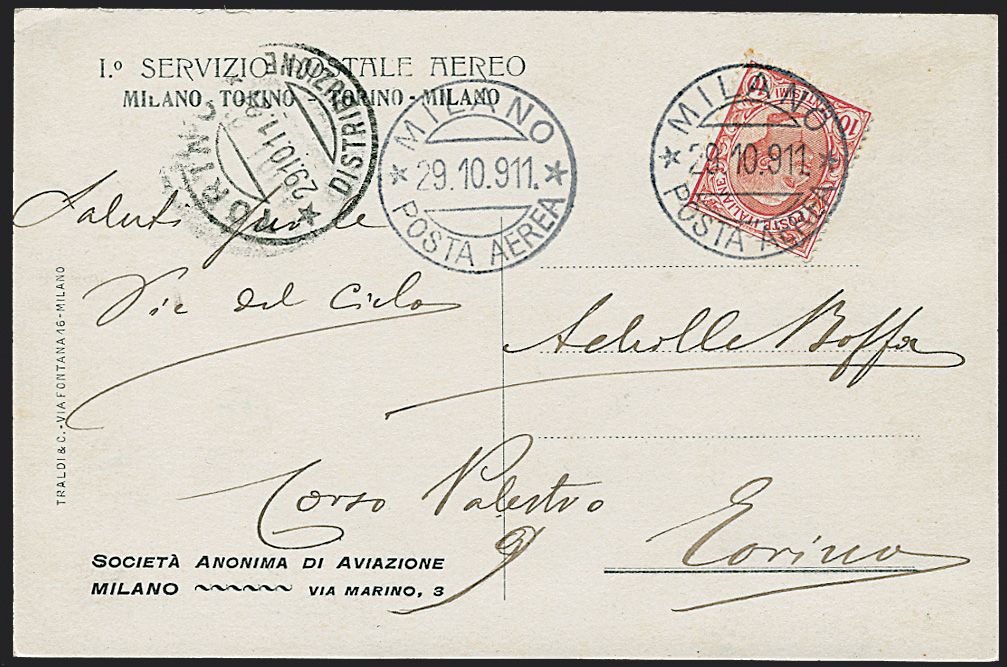 I.º SERVIZIO POSTALE AEREO
MILANO - TORINO - TORINO - MILANO
TORINO
29 10 11
DISTRIBUZIONE
MILANO
29.10.911.
POSTA AEREA
MILANO
29.10.911.
POSTA AEREA
10
POSTE ITALIANE
Saluti
Vie del Cielo
Achille Boffa
Corso Palestro
9
Torino
SOCIETÀ ANONIMA DI AVIAZIONE
MILANO VIA MARINO, 3
TRALDI & C. - VIA FONTANA 16 - MILANO